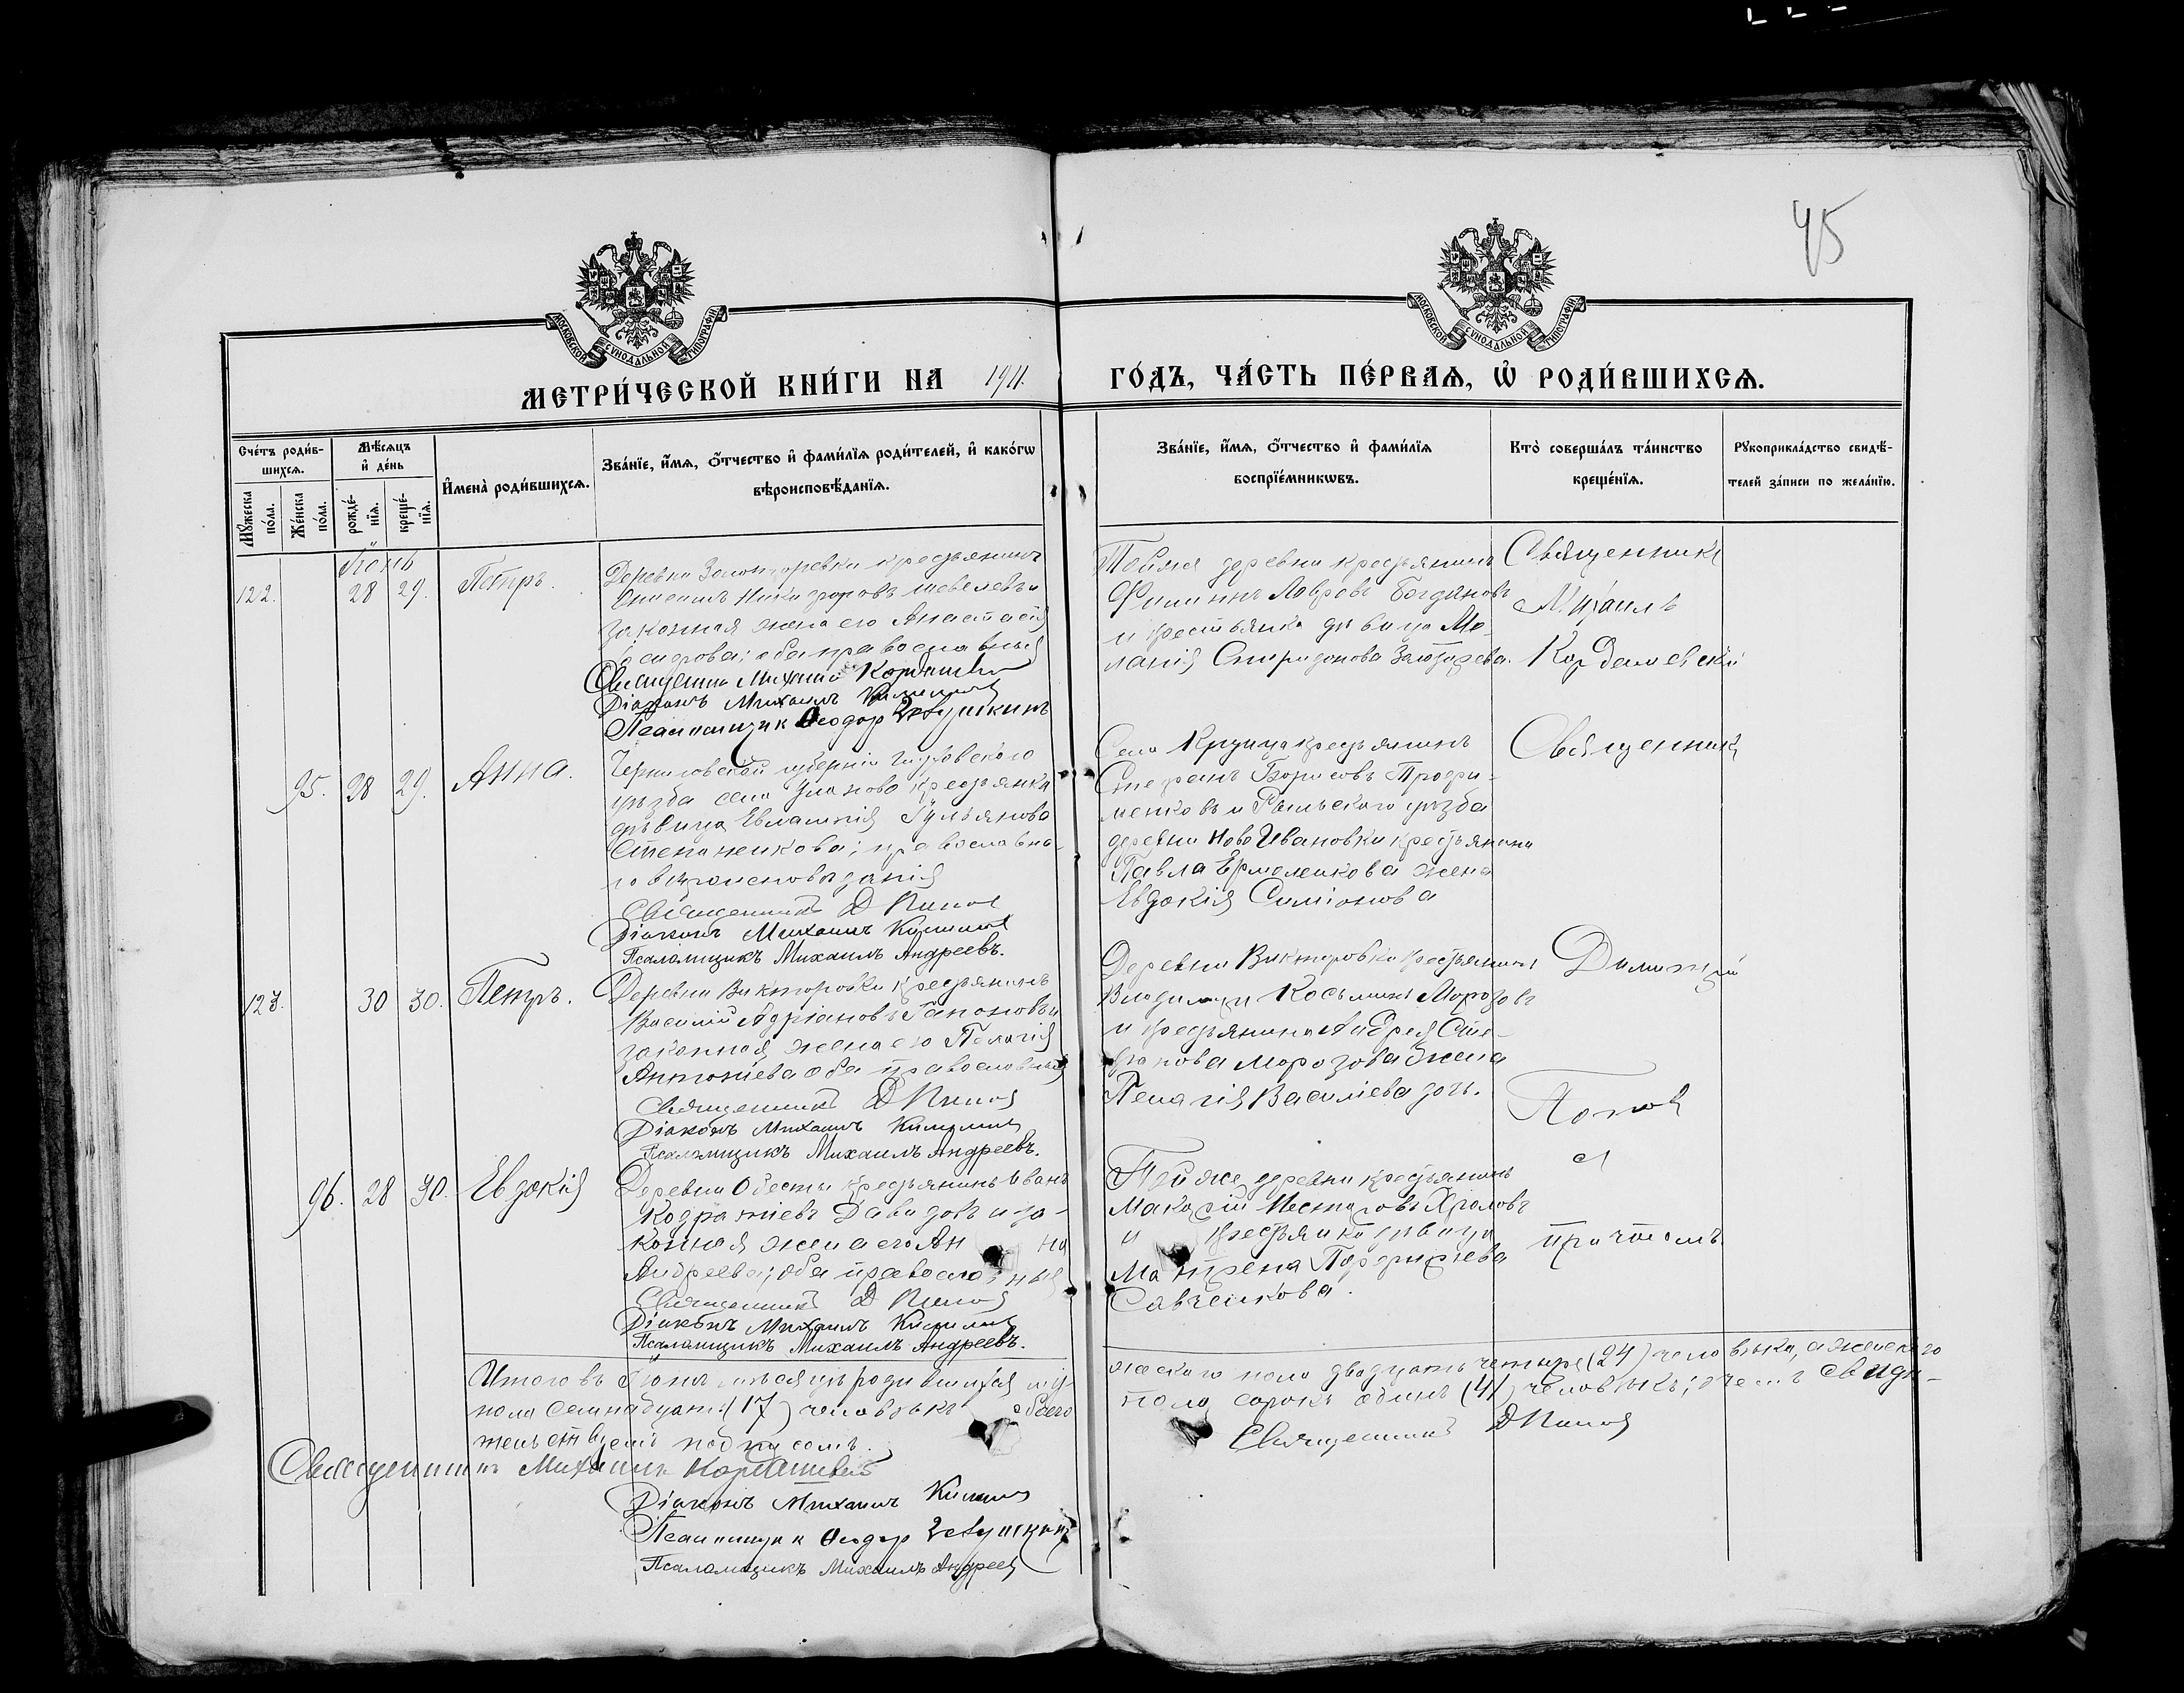 45
МОСКОВСКОЙ СѴНОДАЛЬНОЙ ТИПОГРАФІИ
МОСКОВСКОЙ СѴНОДАЛЬНОЙ ТИПОГРАФІИ
МЕТРИ́ЧЕСКОЙ КНИ́ГИ НА 1911. ГО́ДЪ, ЧА́СТЬ ПЕ́РВАѦ, Ѡ҆ РОДИ́ВШИХСѦ.
Сче́тъ роди́вшихсѧ.
Мꙋ́жеска по́ла.
Же́нска по́ла.
Мѣ́сѧцъ и҆ де́нь
рожде́нїѧ.
креще́нїѧ.
И҆мена̀ роди́вшихсѧ.
Зва́нїе, и҆́мѧ, ѻ҆́тчество и҆ фами́лїѧ роди́телей, и҆ како́гѡ
вѣроисповѣ́данїѧ.
Зва́нїе, и҆́мѧ, ѻ҆́тчество и҆ фами́лїѧ
воспрїе́мникѡвъ.
Кто̀ соверша́лъ та́инство
креще́нїѧ.
Рꙋкоприкла́дство свидѣ́-
телей за́писи по жела́нїю.
Іюнь
122. 28 29. Петръ.
Деревни крестьянинъ
Никифоровъ Шевелевъ и
законная жена его Анастасія
оба православныя
Священникъ Михаилъ
Діаконъ Михаилъ
Псаломщик Ѳеодор
Тойже деревни крестьянинъ
Филиппъ Лавровъ Богдановъ
и крестьянка дѣвица Ме-
ланія Спиридонова
Священникъ
Михаилъ
95. 28 29. Анна.
Черниговской губерніи Глуховского
уѣзда села Уланова крестьянка
дѣвица Евлампія
Степаненкова; православна-
го вѣроисповѣданія
Священникъ Д Попов
Діаконъ Михаилъ
Псаломщикъ Михаилъ Андреевъ.
Села Крупца крестьянинъ
Стефанъ Борисовъ Трофи-
менковъ и Рыльскаго уѣзда
деревни Ново Ивановки крестьянина
Павла Ермоленкова жена
Евдокія Симіонова
Священникъ
123. 30 30. Петръ.
Деревни Викторовки крестьянинъ
Василій Адріановъ Гапоновъ и
законная жена его Пелагія
Антоніева оба православныя
Священникъ Д Попов
Діаконъ Михаилъ
Псаломщикъ Михаилъ Андреевъ.
Деревни Викторовки крестьянинъ
Владимиръ Косьминъ Морозовъ
и крестьянина Андрея Сте-
фанова Морозова жена
Пелагія Василіева дочь.
Димитрій
Попов
96. 28 30. Евдокія
Деревни Обесты крестьянинъ Иванъ
Кодратіевъ Давидовъ и за-
конная жена его Анна
Андреева; оба православныя
Священникъ Д Попов
Діаконъ Михаилъ
Псаломщикъ Михаилъ Андреевъ.
Тойже деревни крестьянинъ
Макарій Несторовъ Храмовъ
и крестьянка дѣвица
Матрена
Савченкова.
съ
причтомъ
Итого въ Іюнѣ мѣсяцѣ родившихся му-
жескаго пола двадцать четыре (24) человѣка, а женскаго
пола семнадцать (17) человѣкъ обоего
пола сорокъ одинъ (41) человѣкъ; въ чемъ свидѣ-
тельствуемъ подписомъ.
Священникъ Д Попов
Священникъ Михаилъ
Діаконъ Михаилъ
Псаломщик Ѳеодор
Псаломщикъ Михаилъ Андреевъ